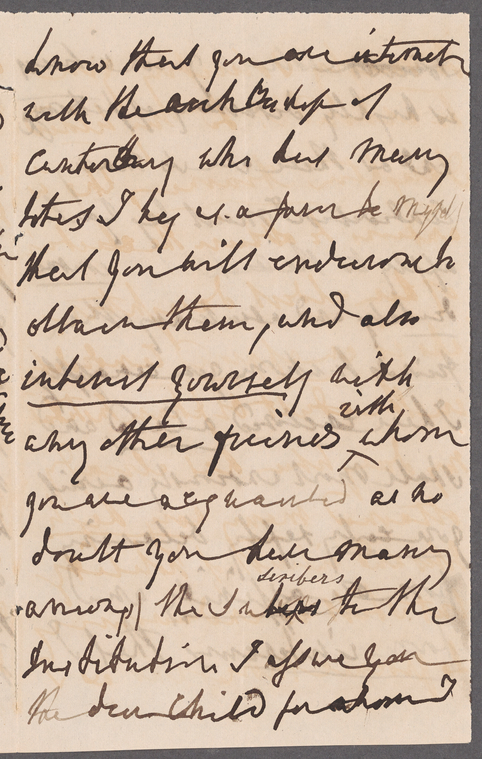 know that you are intimate
with the Archbishop of
Canterbury who has many
votes I beg as a favor to myself
that you will endeavour to
obtain them, and also
interest yourself with
any other friends with whom
you are acquainted as no
doubt you have many
among the Subscribers to the
Institution I assure you
the dear Child for whom I